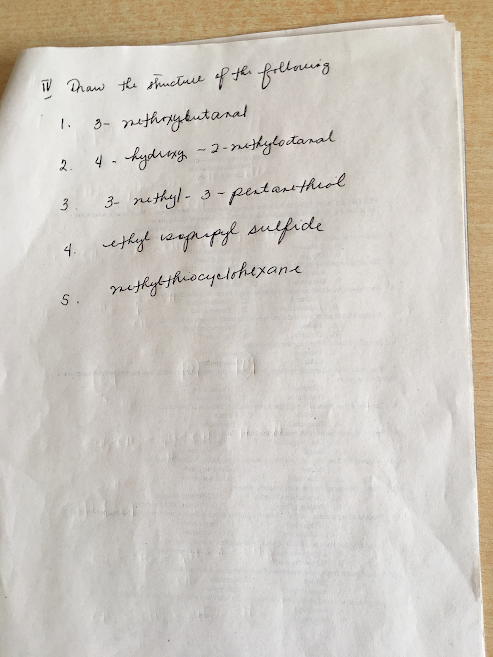 IV Draw the structure of the following
1. 3- methoxybutanal
2. 4 - hydroxy - 2 - methyloctanal
3 3- methyl - 3 - pentanethiol
4. ethyl isopropyl sulfide
5. methylthiocyclohexane